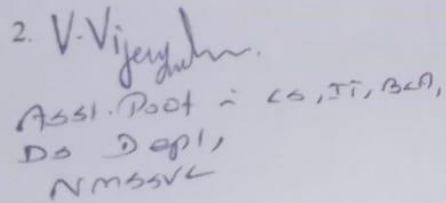 2. V. Vijey
Asst. Prof - CS, IT, BCA,
DS Dept,
NMSSVC